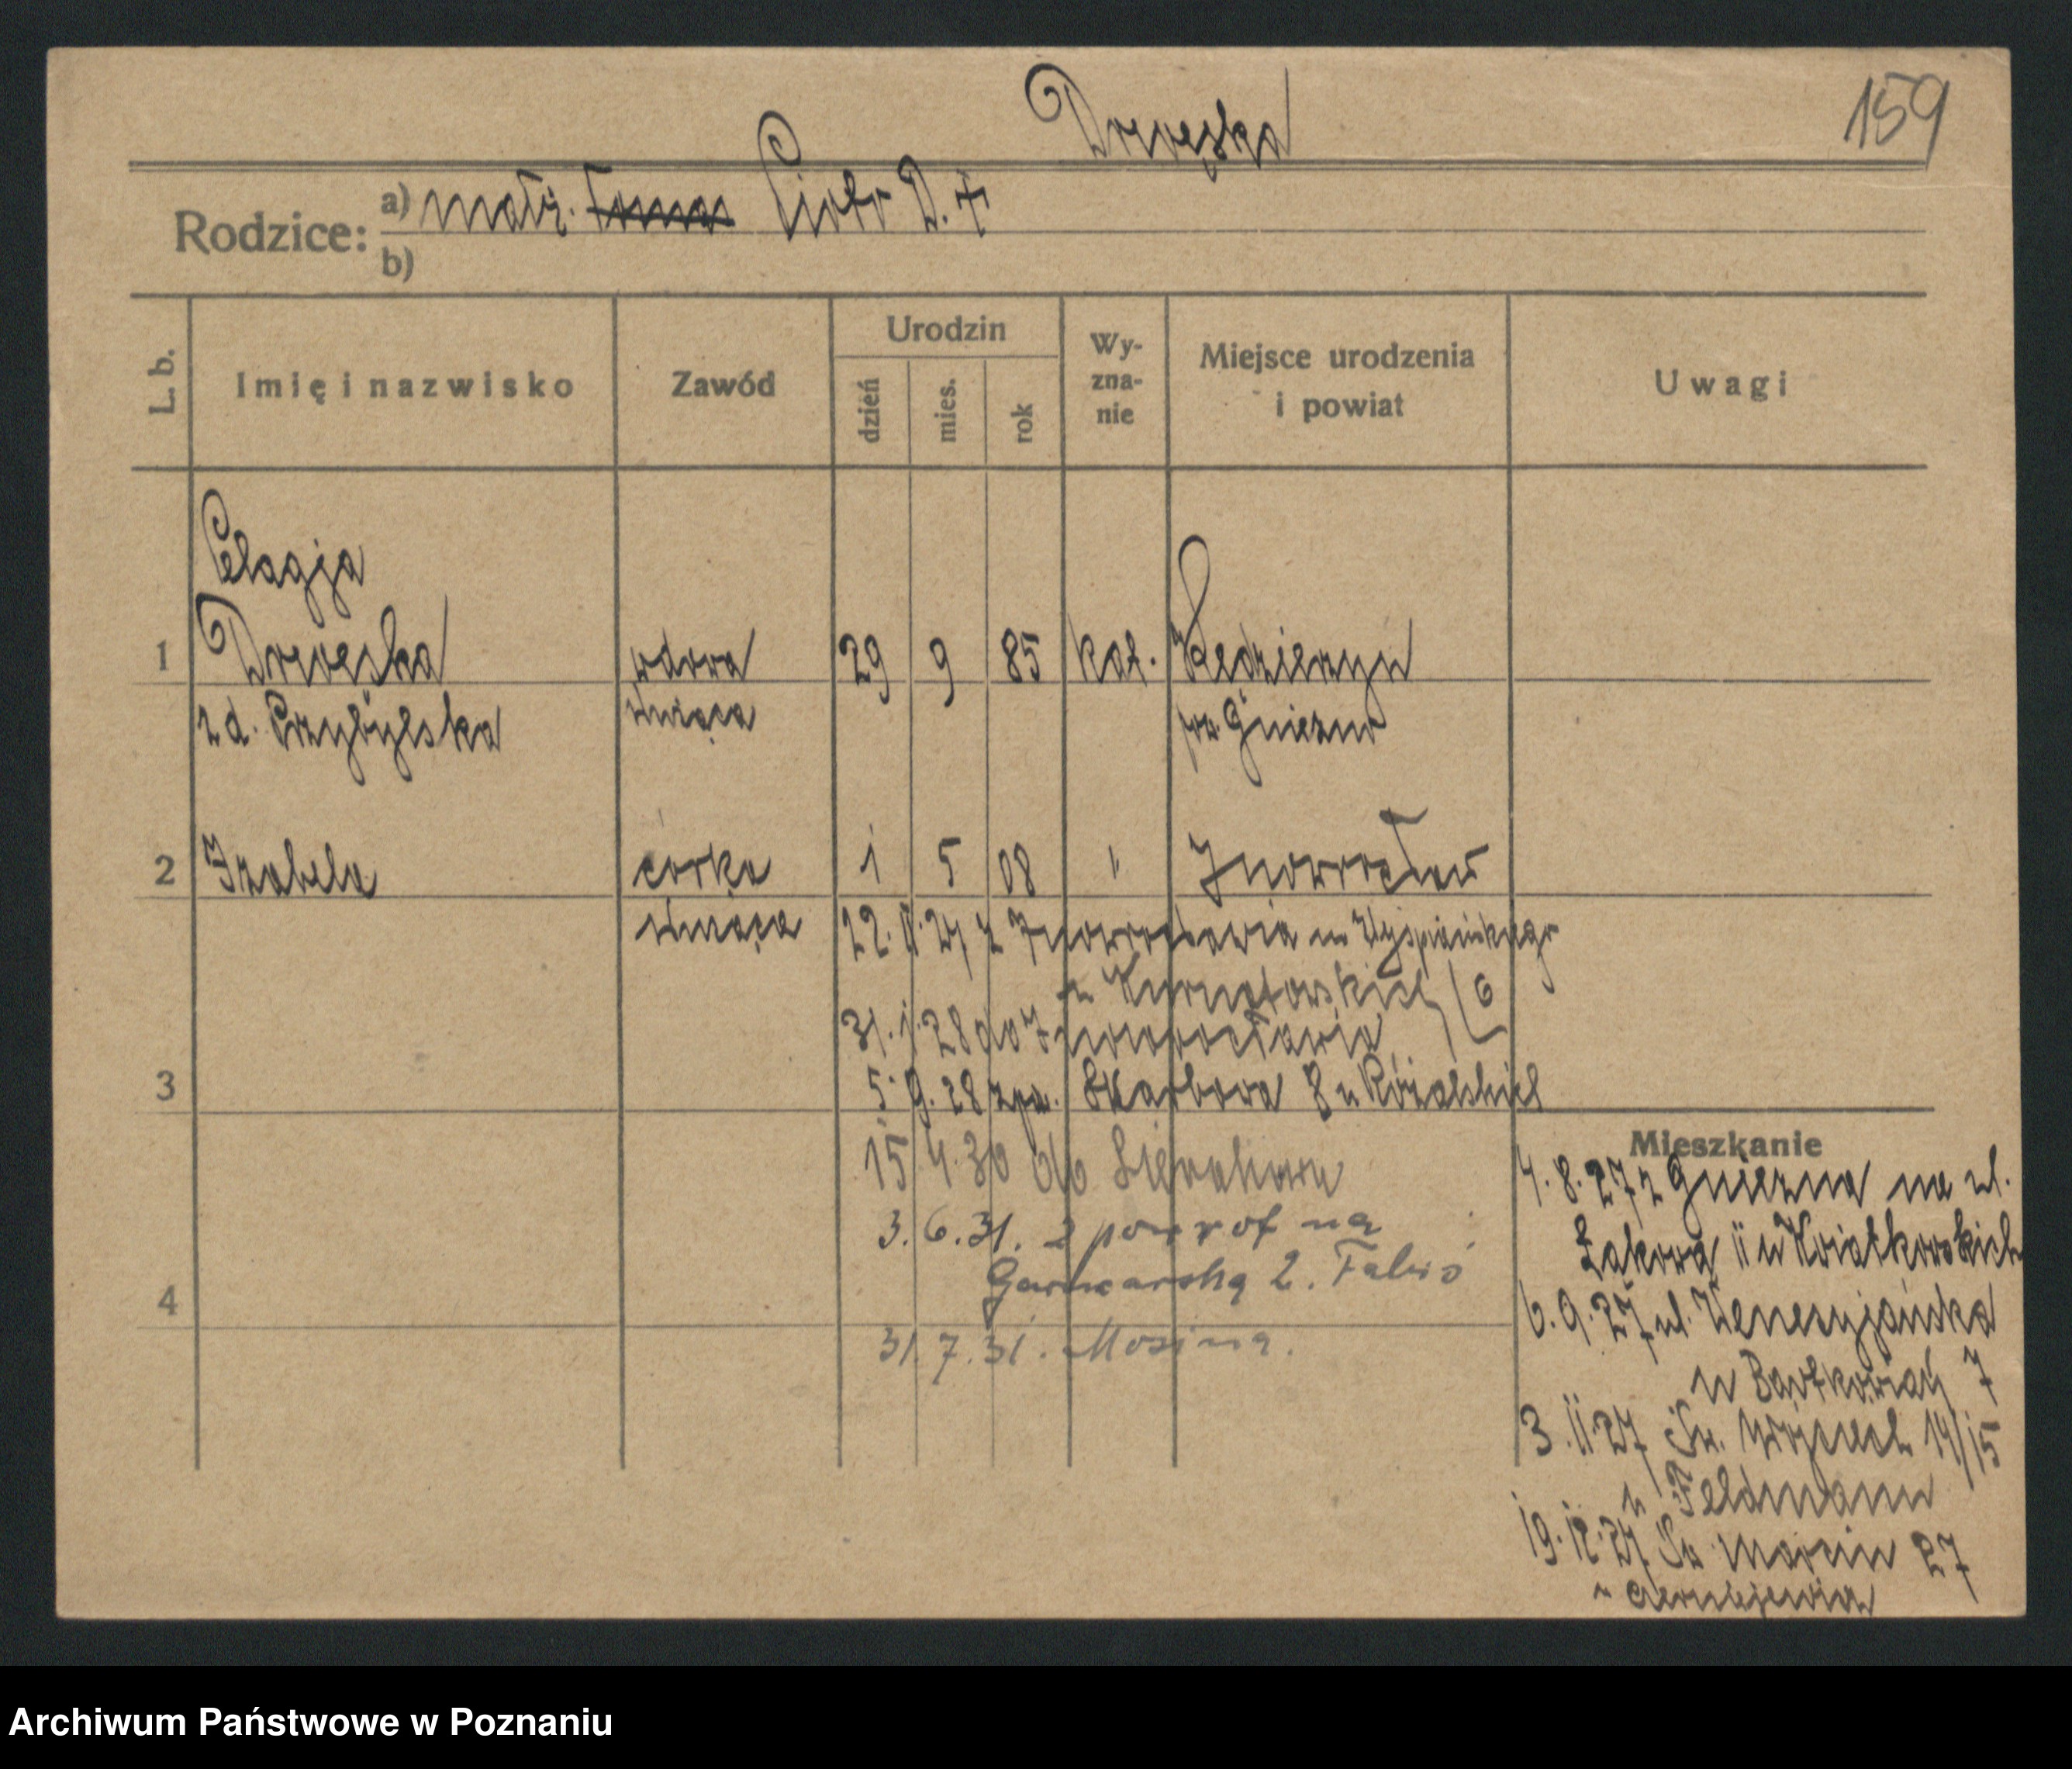 Drwęska
159
Rodzice: a) małż. Piotr D. †
b)
L. b.
Imię i nazwisko
Zawód
Urodzin
dzień
mies.
rok
Wy-
zna-
nie
Miejsce urodzenia
i powiat
Uwagi
Pelagja
1 Drwęska wdowa 29 9 85 kat. Kędzierzyn
z d. Przybylska pow. Gniezno
2 Izabela córka 1 5 08 " Inowrocław
22. 27 z Inowrocławia Wyspiańskiego
u Kurnatowskich 6
31. 1. 28 do Inowrocławia
3
5. 9. 28 Skarbowa 8 u
15 4. 30 do Sierakowa
3. 6. 31. z powrot na
Garncarską 2.
4
31. 7. 31. Mosina.
Mieszkanie
4. 8. 27 z Gniezna na ul.
Łąkową 11 u Kwiatkowskich
6. 9. 27 ul. Wenecjańska
u Bartkowiak 7
3. 11 27 Św. Wojciech 14/15
u Feldmann
19. 12. 27 Św Marcin 27
u
Archiwum Państwowe w Poznaniu